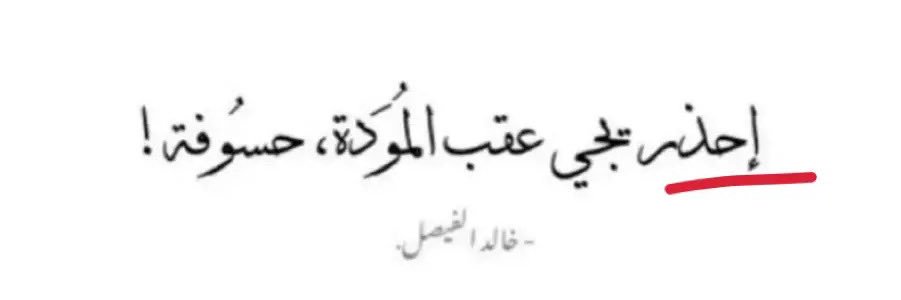 إحذر تجي عقب المُوَدة، حسُوفة!
- خالد الفيصل.